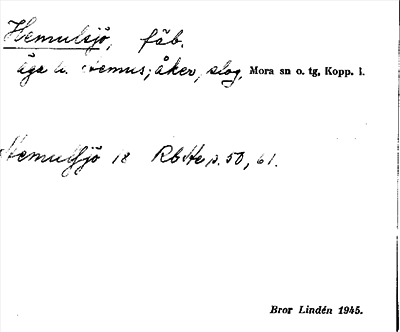 Hemulsjö, fäb.
äga h. Nemus; åker, slog, Mora sn o. tg, Kopp. l.
Hemulsjö 18 RbHe s. 50, 61.
Bror Lindén 1945.